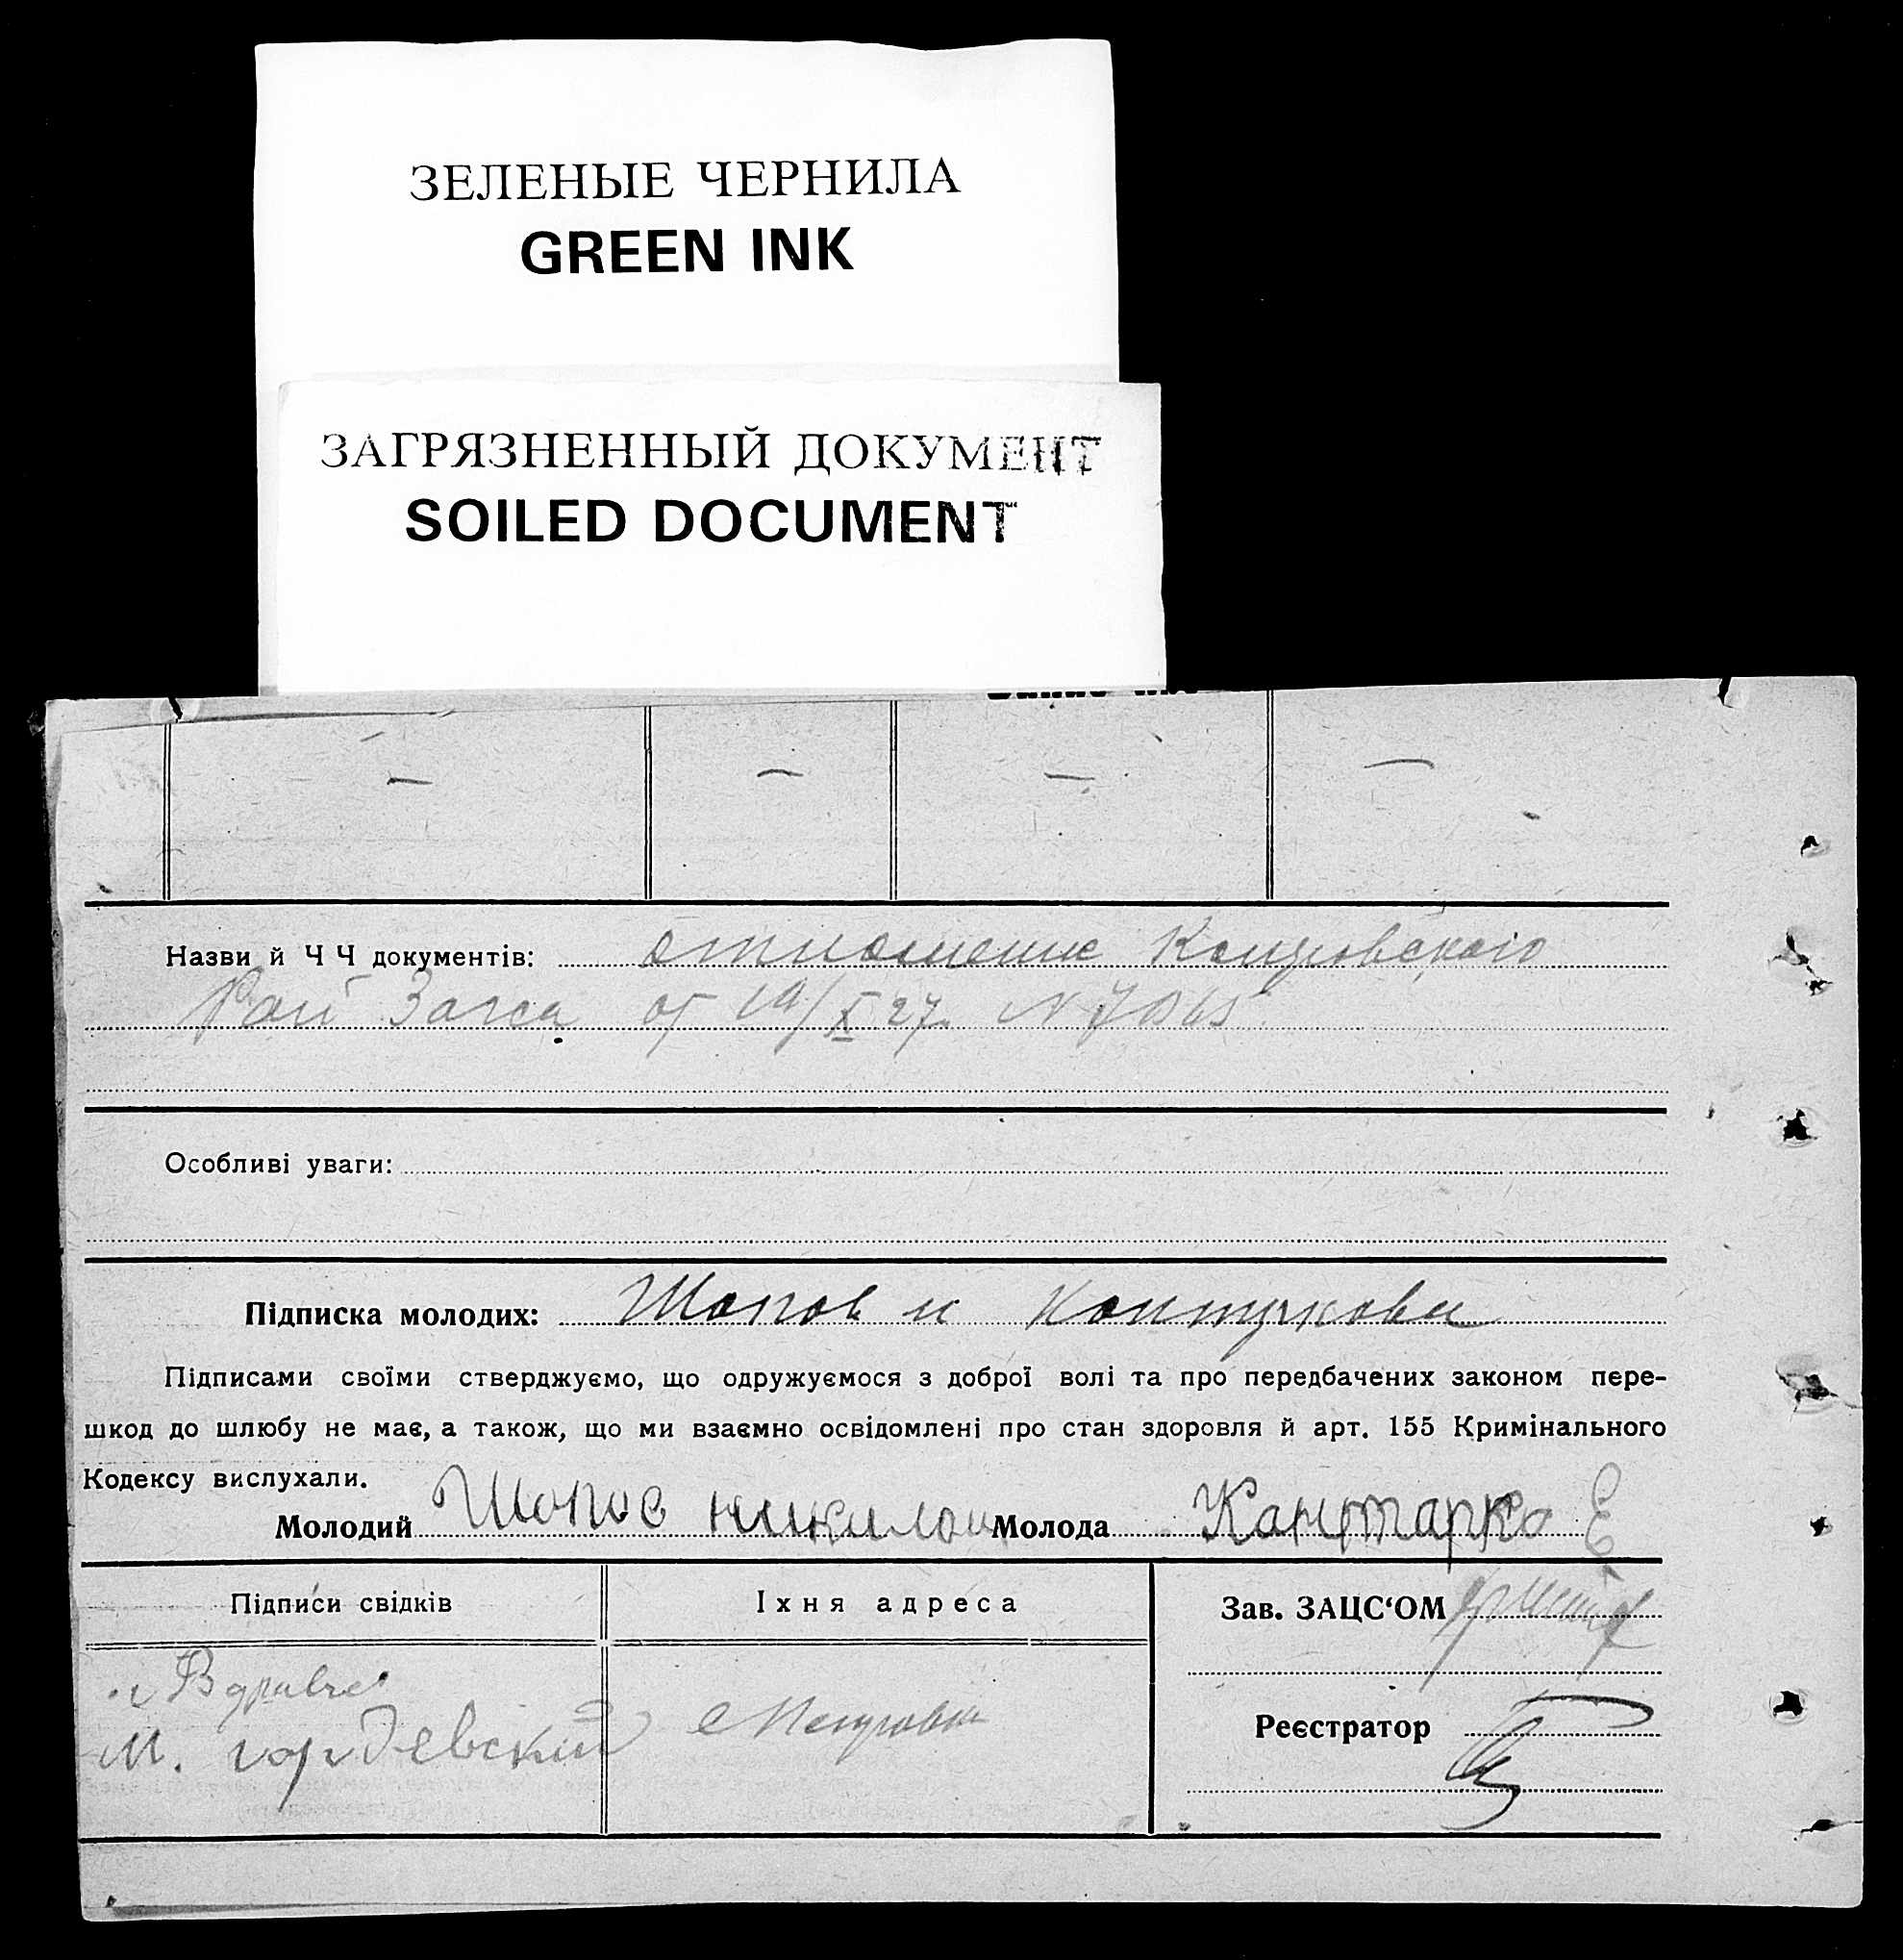 ЗЕЛЕНЫЕ ЧЕРНИЛА
GREEN INK
ЗАГРЯЗНЕННЫЙ ДОКУМЕНТ
SOILED DOCUMENT
Назви й Ч Ч документів: отношение
Рай Загса от 19/X 27. N
Особливі уваги:
Підписка молодих: Шопов и
Підписами своїми стверджуємо, що одружуємося з доброї волі та про передбачених законом пере-
шкод до шлюбу не має, а також, що ми взаємно освідомлені про стан здоровля й арт. 155 Кримінального
Кодексу вислухали.
Молодий Шопов николай Молода Е
Підписи свідків Їхня адреса Зав. ЗАЦС'ОМ
М. гордевский
Реєстратор